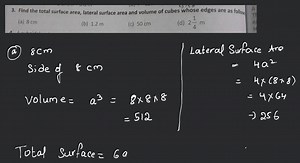 3. Find the total surface area, lateral surface area and volume of cubes whose edges are as follows
(a) 8 cm (b) 1.2 m (c) 50 cm (d) 2 1/4 m
(a) 8cm
Side of 8 cm
Volume = a³ = 8×8×8
= 512
Total Surface = 6a
Lateral Surface Are
= 4a²
= 4×(8×8)
= 4×64
→ 256